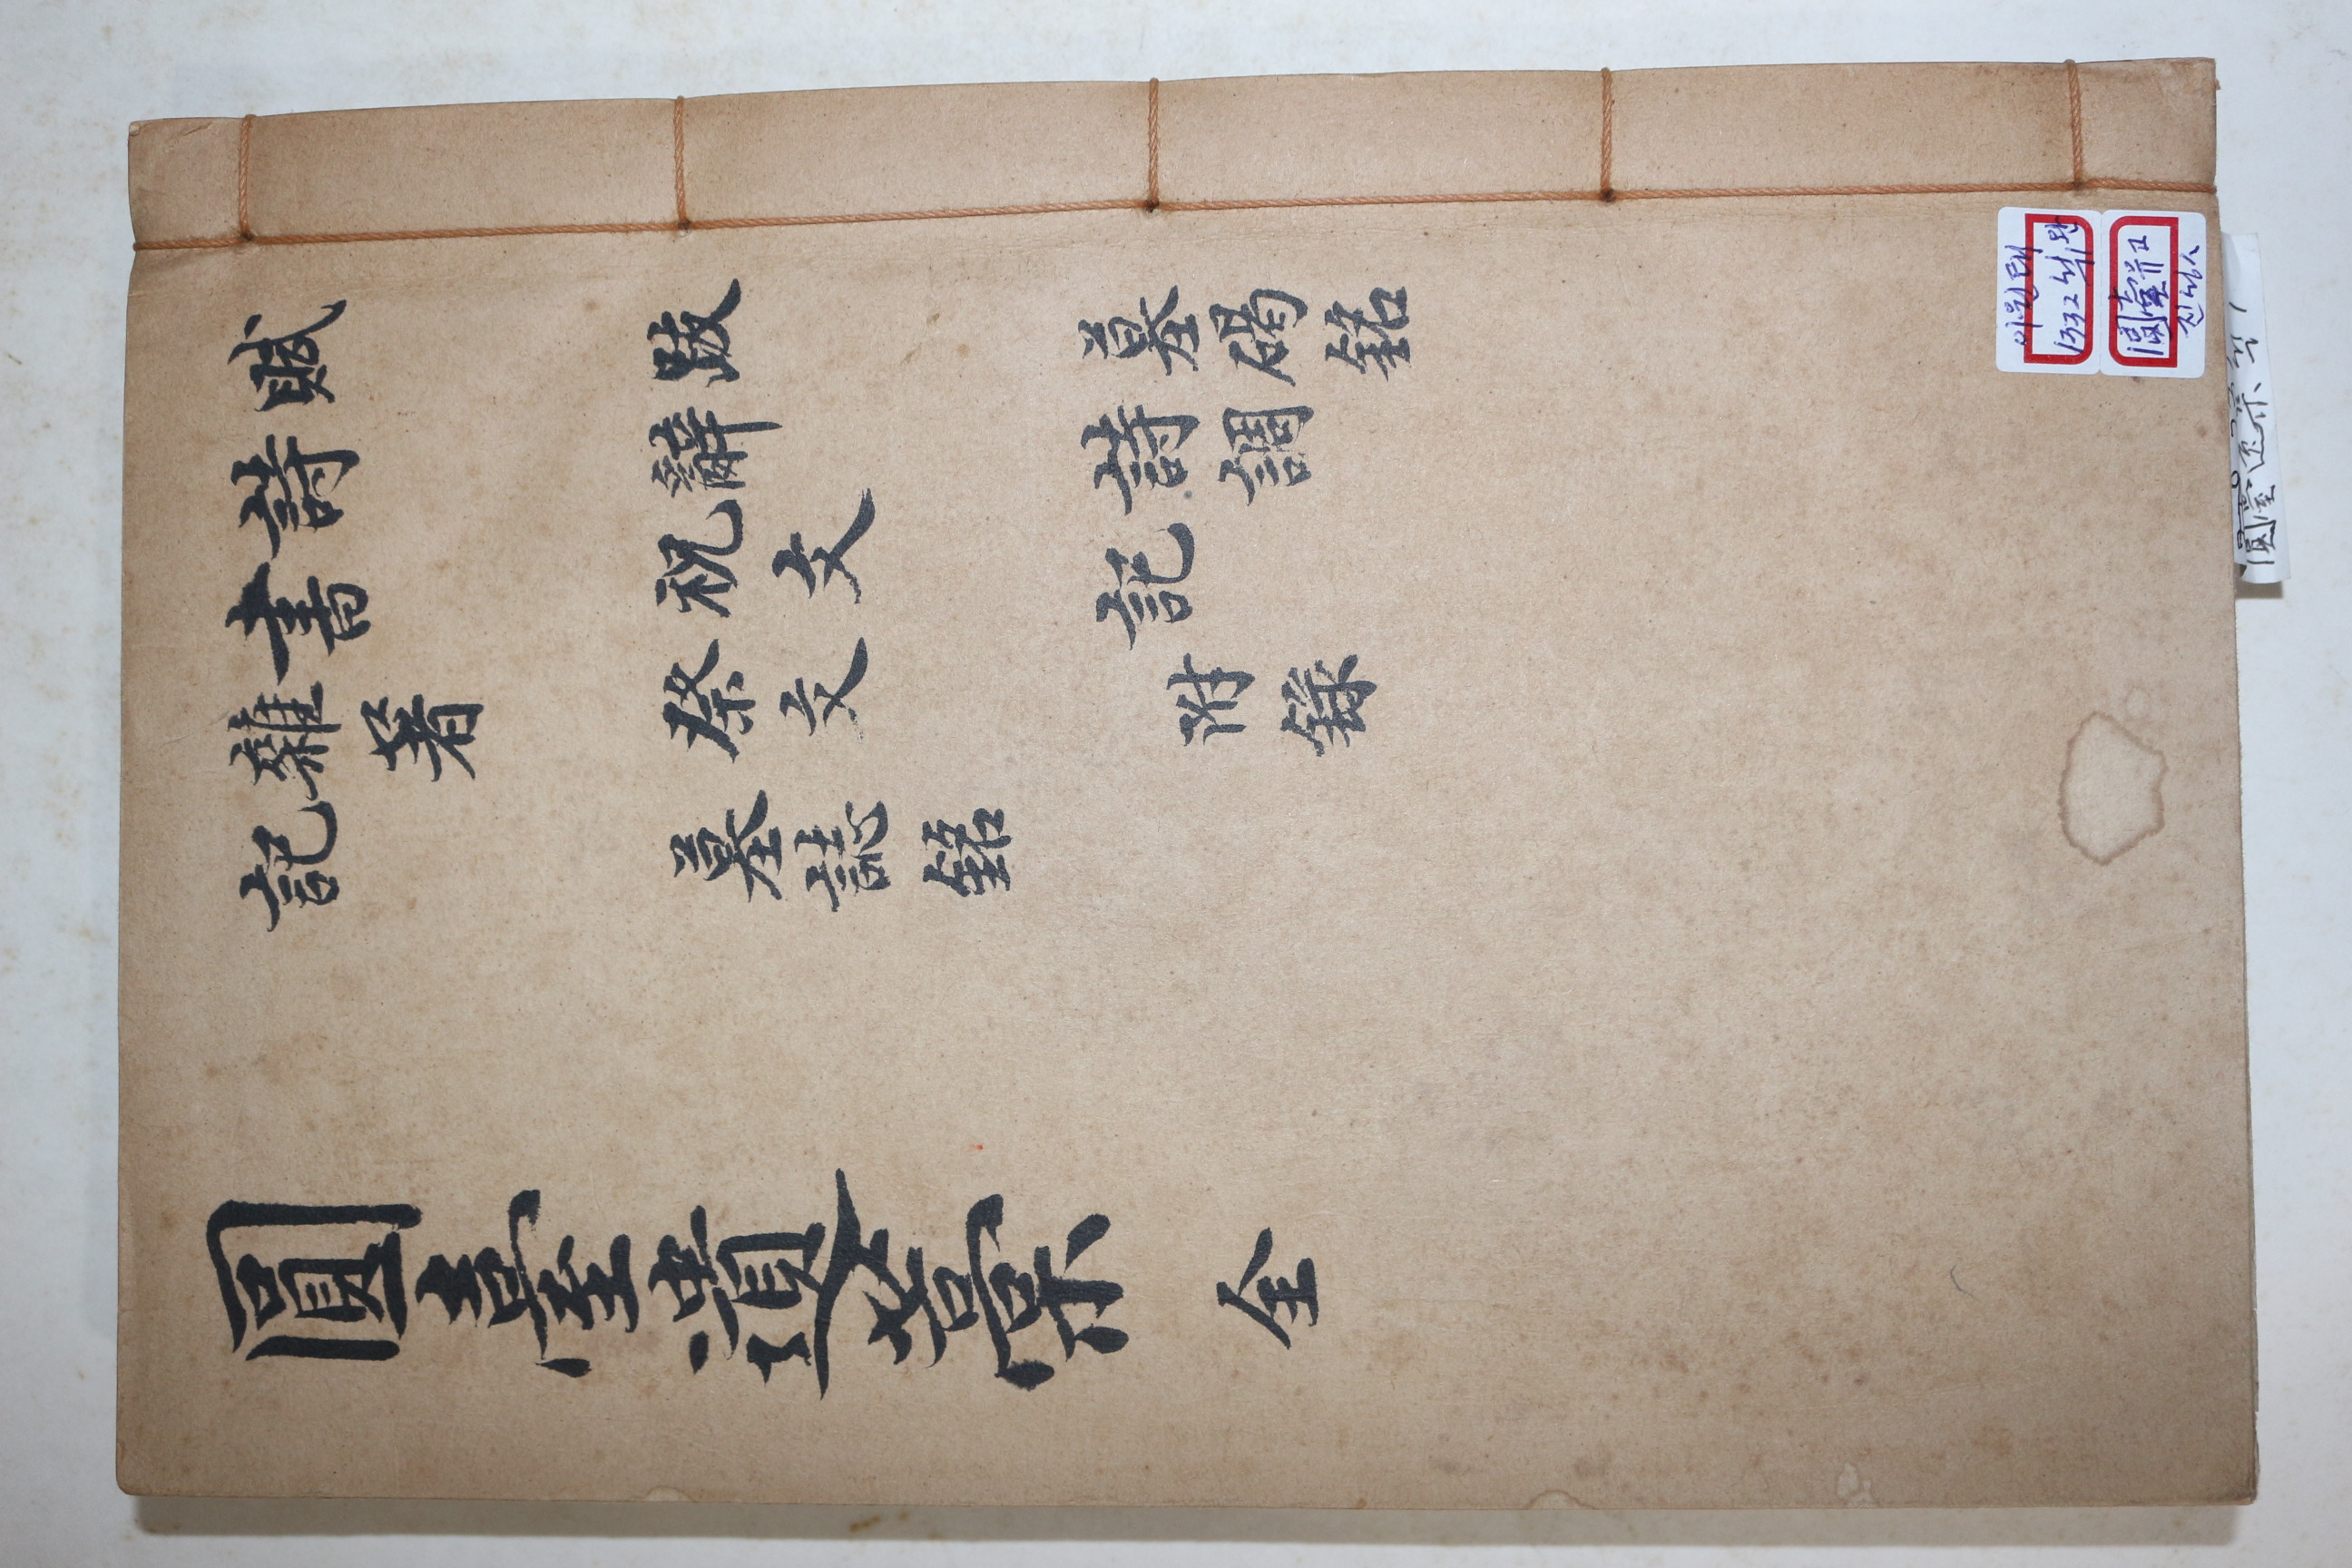 賦
詩
書
雜著
記
跋
辭
祝文
祭文
墓誌銘
墓碣銘
詩調
記
附錄
圓臺遺藁 全
이원태
1332
圓臺유고
圓臺